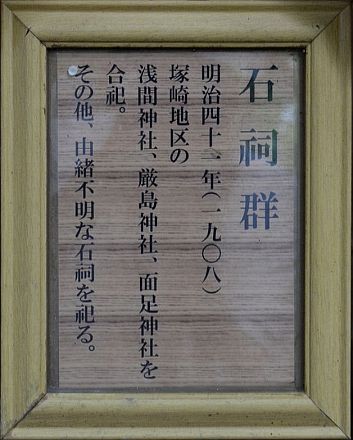 石祠群
明治四十一年(一九〇八)
塚崎地区の
浅間神社、厳島神社、面足神社を
合祀。
その他、由緒不明な石祠を祀る。